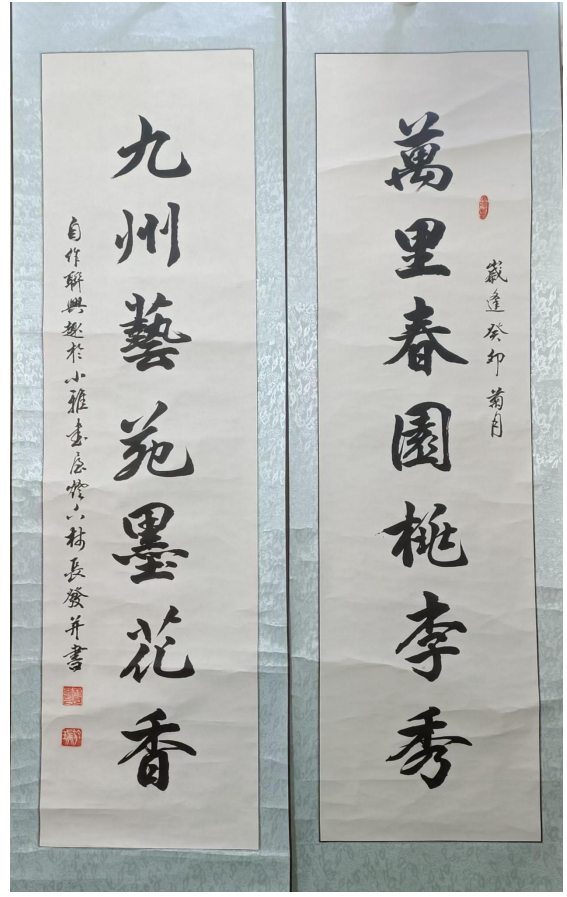 萬里春園桃李秀
歲逢癸卯菊月
九州藝苑墨花香
自作聯興趣於小雅書屋燈下林長發并書